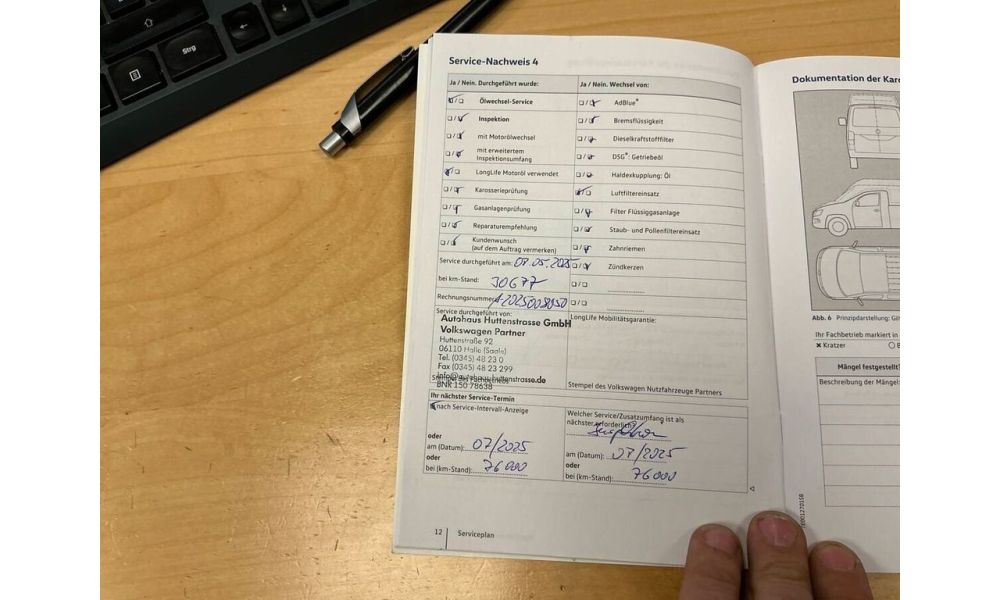 Strg
Service-Nachweis 4
Ja / Nein. Durchgeführt wurde:
Ja / Nein. Wechsel von:
Ölwechsel-Service
AdBlue®
Inspektion
Bremsflüssigkeit
mit Motorölwechsel
Dieselkraftstofffilter
mit erweitertem
Inspektionsumfang
DSG®: Getriebeöl
LongLife Motoröl verwendet
Haldexkupplung: Öl
Karosserieprüfung
Luftfiltereinsatz
Gasanlagenprüfung
Filter Flüssiggasanlage
Reparaturempfehlung
Staub- und Pollenfiltereinsatz
Kundenwunsch
(auf dem Auftrag vermerken)
Zahnriemen
Service durchgeführt am: 07.05.2025
Zündkerzen
bei km-Stand: 30677
Rechnungsnummer
Service durchgeführt von:
LongLife Mobilitätsgarantie:
Autohaus Huttenstrasse GmbH
Volkswagen Partner
Huttenstraße 92
06110 Halle (Saale)
Tel. (0345) 48 23 0
Fax (0345) 48 23 299
info@autohaus-huttenstrasse.de
BNR 150 78638
Stempel des Volkswagen Nutzfahrzeuge Partners
Ihr nächster Service-Termin
nach Service-Intervall-Anzeige
Welcher Service/Zusatzumfang ist als
nächster erforderlich?
oder
am (Datum): 07/2025
am (Datum): 07/2025
oder
oder
bei (km-Stand): 76000
bei (km-Stand): 76000
12 Serviceplan
Dokumentation der Karo
Abb. 6 Prinzipdarstellung:
Ihr Fachbetrieb markiert in
Kratzer
Mängel festgestellt?
Beschreibung der Mängel: